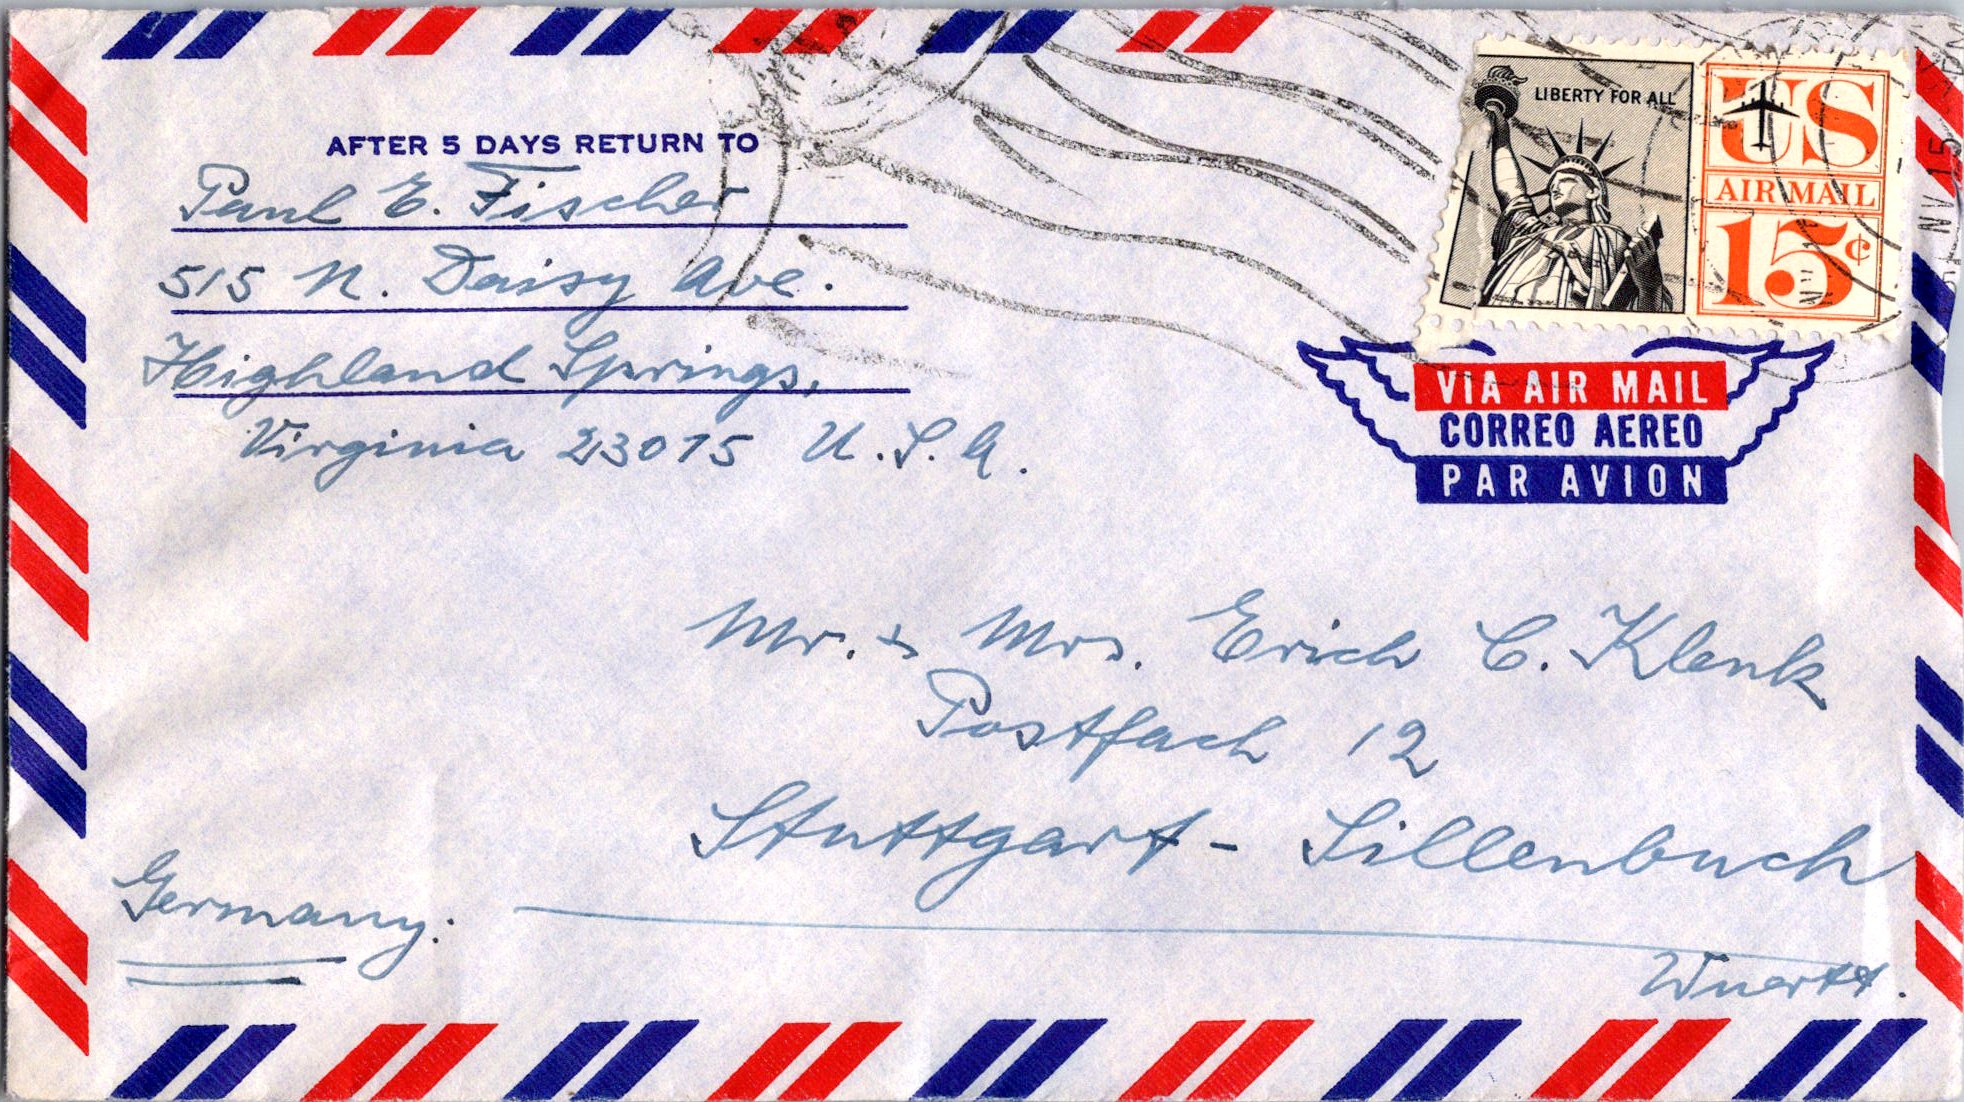 AFTER 5 DAYS RETURN TO
Paul E. Fischer
515 N. Daisy Ave.
Highland Springs,
Virginia 23075 U.S.A.
LIBERTY FOR ALL
US
AIR MAIL
15¢
NV 15
VIA AIR MAIL
CORREO AEREO
PAR AVION
Mr. & Mrs. Erich C. Klenk
Postfach 12
Stuttgart - Sillenbuch
Wuertt.
Germany.